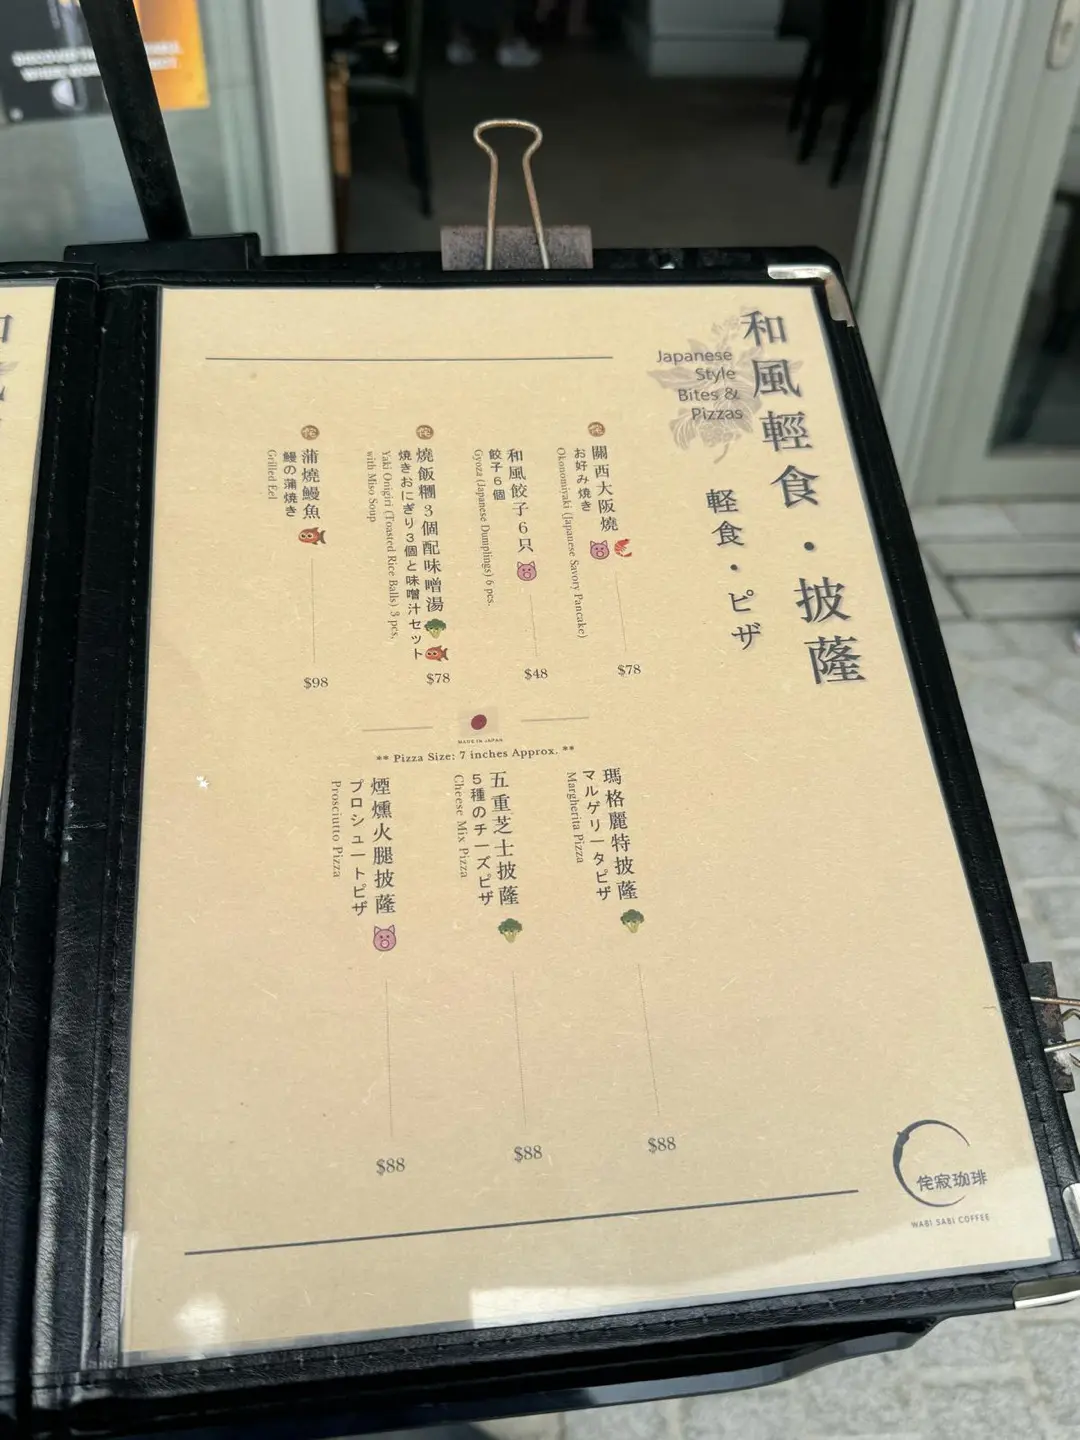 和風輕食・披薩
Japanese
Style
Bites &
Pizzas
軽食・ピザ
關西大阪燒
お好み焼き
Okonomiyaki (Japanese Savory Pancake)
$78
和風餃子6只
餃子6個
Gyoza (Japanese Dumplings) 6 pcs.
$48
燒飯糰3個配味噌湯
焼きおにぎり3個と味噌汁セット
Yaki Onigiri (Toasted Rice Balls) 3 pcs,
with Miso Soup
$78
蒲燒鰻魚
鰻の蒲焼き
Grilled Eel
$98
MADE IN JAPAN
** Pizza Size: 7 inches Approx. **
瑪格麗特披薩
マルゲリータピザ
Margherita Pizza
$88
五重芝士披薩
5種のチーズピザ
Cheese Mix Pizza
$88
煙燻火腿披薩
プロシュートピザ
Prosciutto Pizza
$88
侘寂珈琲
WABI SABI COFFEE